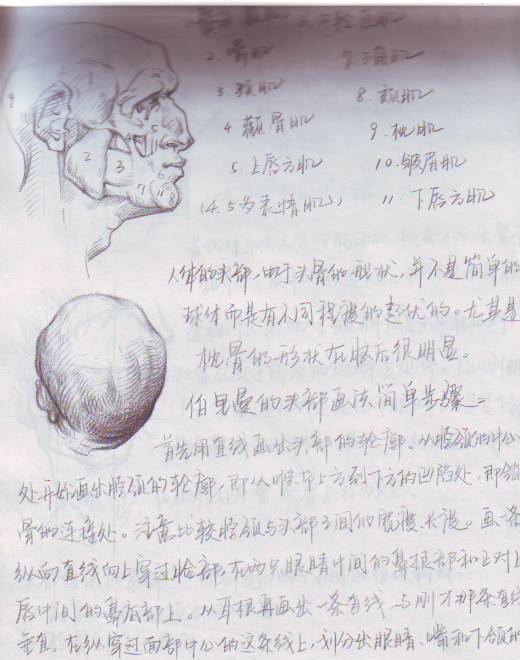 3. 颊肌 8. 颏肌
4 颧骨肌 9. 枕肌
5. 上唇方肌 10. 皱眉肌
(4. 5为表情肌), 11. 下唇方肌
人体的头部,由于头骨的形状,并不是简单的
球体而具有不同程度的起伏的。尤其是
枕骨的形状在脑后很明显。
伯里曼的头部画法简单步骤=
首先用直线画出头部的轮廓。从脖颈的中心
处开始画出脖颈的轮廓,即从喉上方到下方的凹陷处,即
骨的连接处。注意比较脖颈与头部之间的宽度长度。画一条
纵向直线向上穿过脸部,在两只眼睛中间的鼻根部和正对上
唇中间的鼻底部上。从耳根再画出一条直线与刚才那条直线
垂直。在纵穿过面部中心的这条线上,划分出眼睛、嘴和下颌的
2
3
4
5